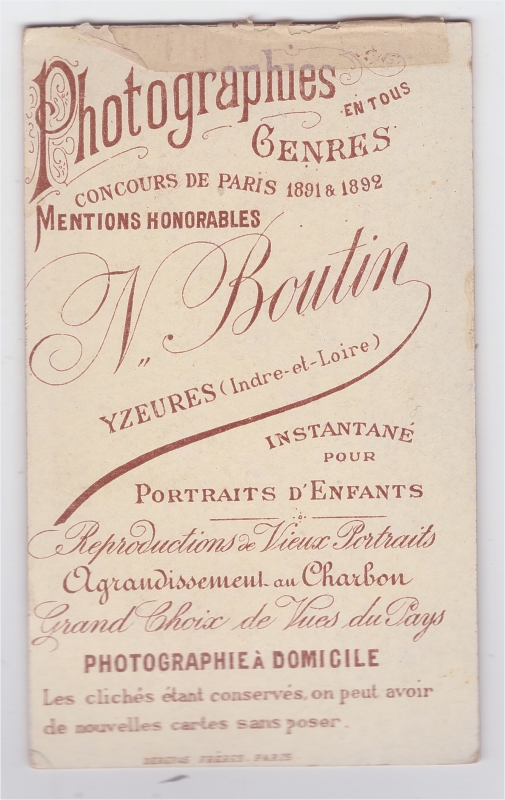 Photographies
EN TOUS
GENRES
CONCOURS DE PARIS 1891 & 1892
MENTIONS HONORABLES
N. Boutin
YZEURES (Indre-et-Loire)
INSTANTANÉ
POUR
PORTRAITS D'ENFANTS
Reproductions de Vieux Portraits
Agrandissement au Charbon
Grand Choix de Vues du Pays
PHOTOGRAPHIE À DOMICILE
Les clichés étant conservés, on peut avoir
de nouvelles cartes sans poser.
FRÈRES. PARIS